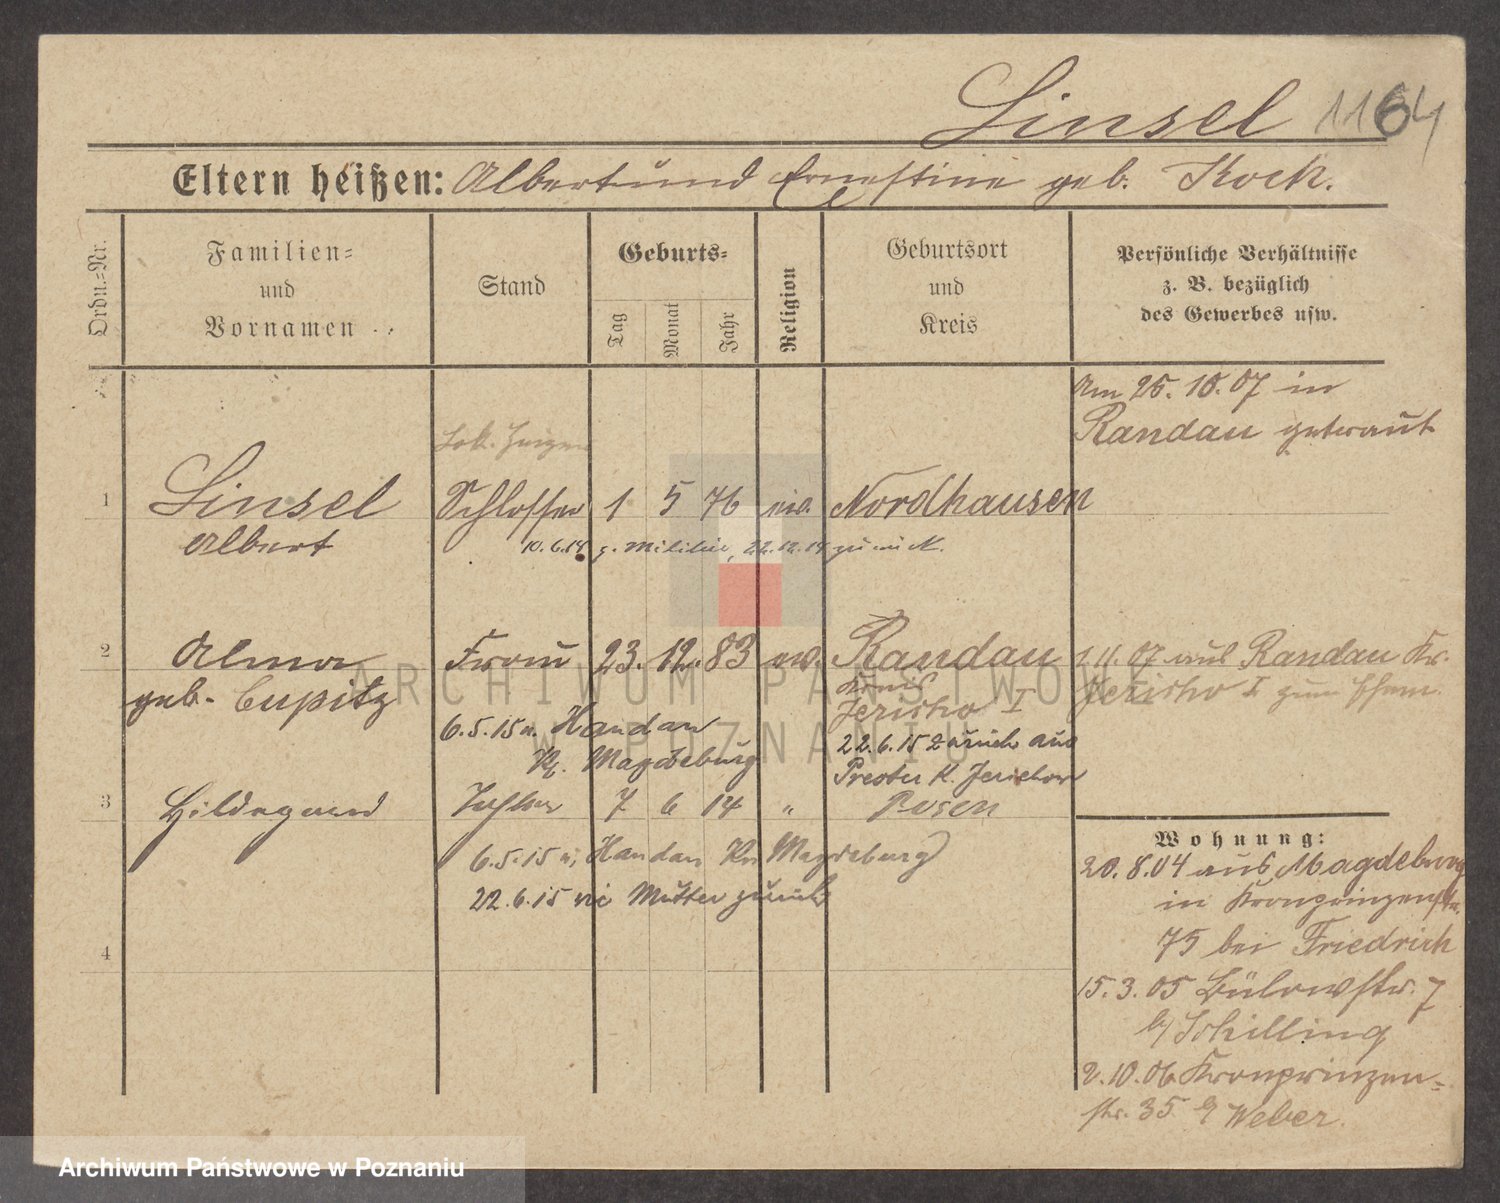 Linsel 1164
Eltern heißen: Albert und Ernestine geb. Koch.
Ordn.=Nr.
Familien=
und
Vornamen
Stand
Geburts=
Tag
Monat
Jahr
Religion
Geburtsort
und
Kreis
Persönliche Verhältnisse
z. B. bezüglich
des Gewerbes usw.
Am 25. 10. 07 in
Randau getraut
Lok. Heizer
1 Linsel Schlosser 1 5 76 ev. Nordhausen
Albert
10.6.14 z. Militär, 22.12.14 zurück.
2 Alma Frau 23. 12. 83 ev. Randau
geb. Cupitz
Kreis
Jericho I
1.11.07 aus Randau Kr.
Jericho I zum Ehem.
6.5.15 n. Handau
Kr. Magdeburg
22.6.15 zurück aus
Prester K. Jerichow
3 Hildegard Tochter 7 6 14 " Posen
6.5.15 n. Handau Kr. Magdeburg
22.6.15 m Mutter zurück
4
Wohnung:
20.8.04 aus Magdeburg
in Kronprinzenstr.
75 bei Friedrich
15.3.05 Bülowstr. 7
b/ Schilling
2.10.06 Kronprinzen=
str. 35 b/ Weber.
ARCHIWUM PAŃSTWOWE
W POZNANIU
Archiwum Państwowe w Poznaniu